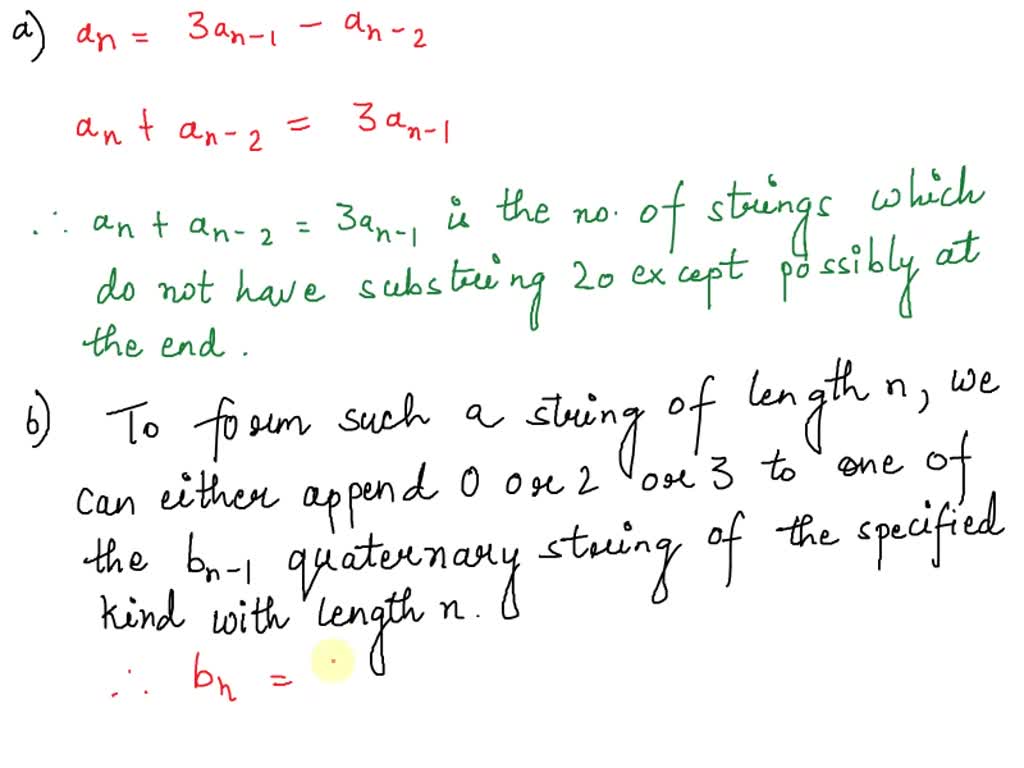 a) aₙ = 3aₙ₋₁ − aₙ₋₂
aₙ + aₙ₋₂ = 3aₙ₋₁
∴ aₙ + aₙ₋₂ = 3aₙ₋₁ is the no. of strings which
do not have substring 20 except possibly at
the end.
b) To form such a string of length n, we
can either append 0 or 2 or 3 to one of
the bₙ₋₁ quaternary string of the specified
kind with length n.
∴ bₙ =